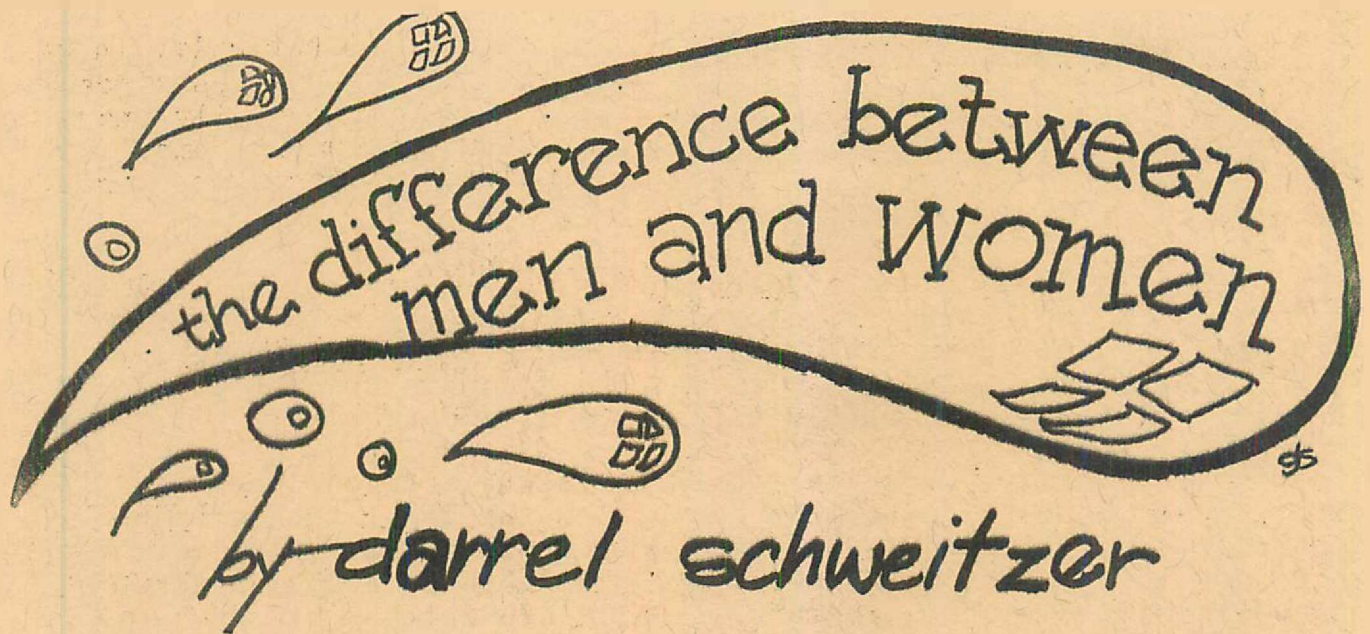 the difference between
men and women
gts
by darrel schweitzer